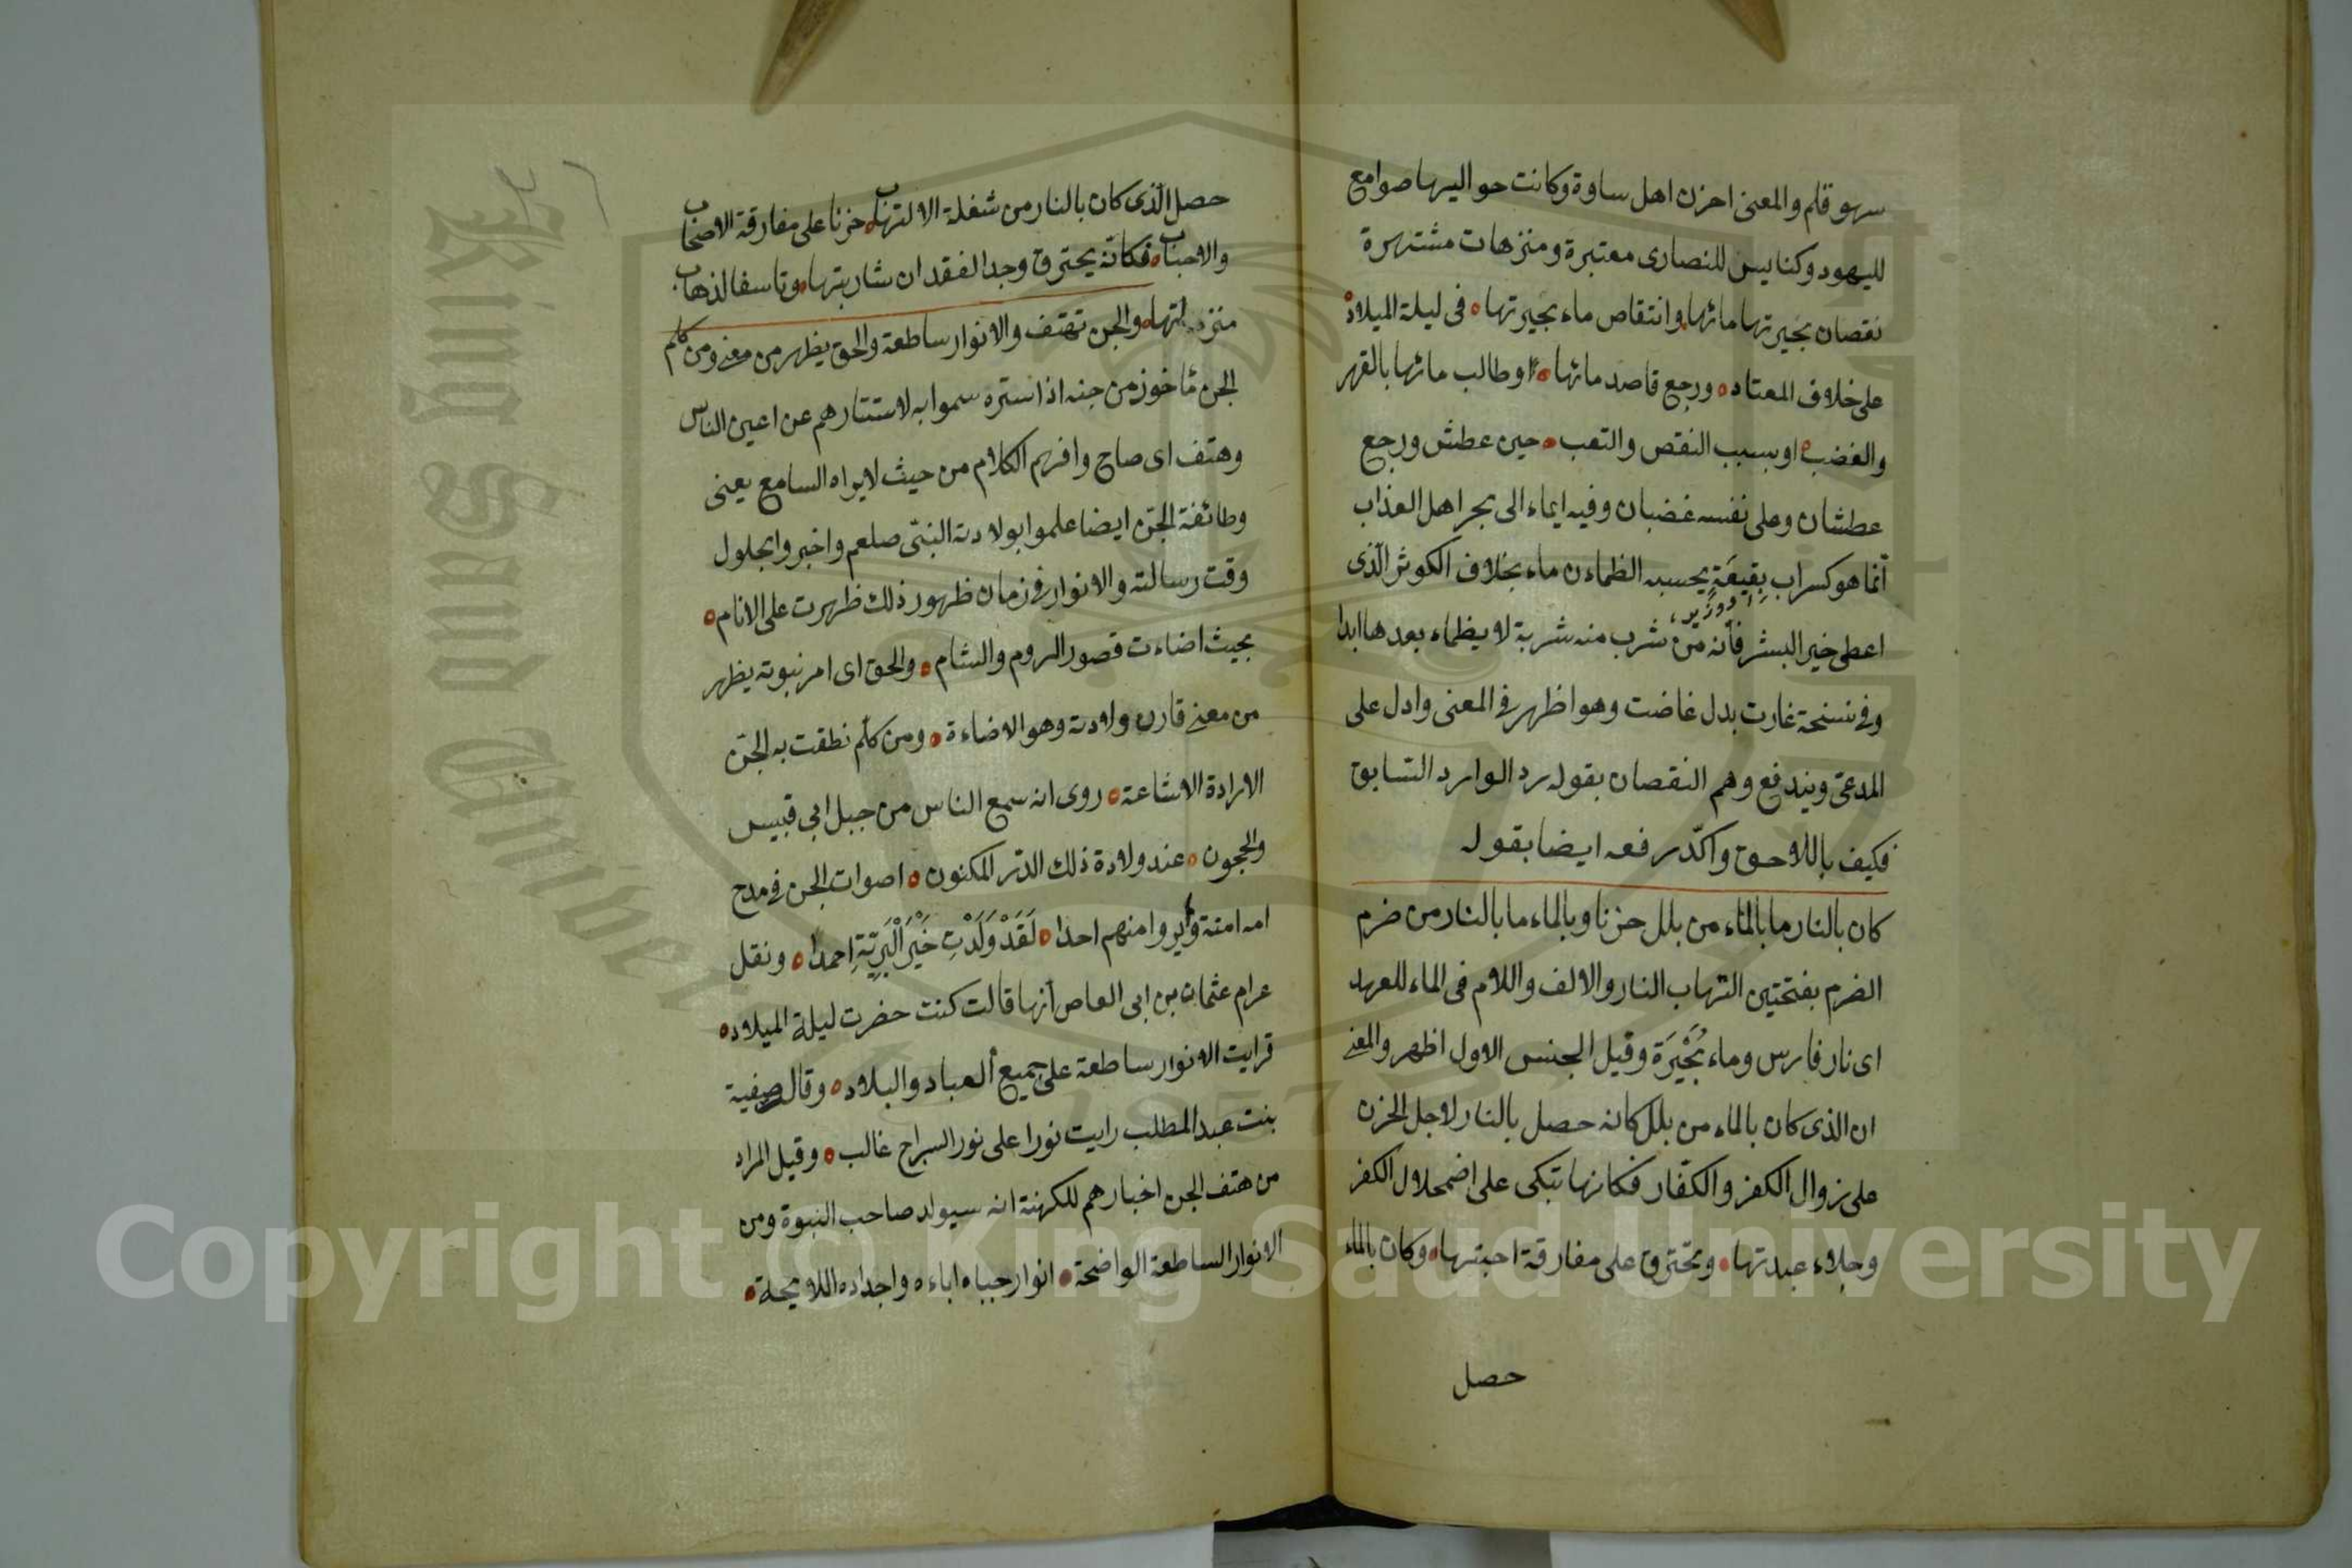 سهو قلم والمعنى احزن اهل ساوة وكانت حواليها صوامع
لليهود وكنايس للنصارى معتبرة ومنزهات مشتهرة
نقصان بحيرتها مائها وانتقاص ماء بحيرتها في ليلة الميلاد
على خلاف المعتاد ورجع قاصد مائها او طالب مائها بالقهر
والغضب او بسبب النقص والتعب حين عطش ورجع
عطشان وعلى نفسه غضبان وفيه ايماء الى بحر اهل العذاب
انما هو كسراب بِقِيعَةٍ يحسبه الظمان ماء بخلاف الكوثر الذى
اعطى خير البشر فانه من شرب منه شربة لا يظماء بعدها ابدا
وفى نسخة غارت بدل غاضت وهو اظهر فى المعنى وادل على
المدعى ويندفع وهم النقصان بقوله رد الوارد السابق
فكيف باللاحق واكّد رفعه ايضا بقوله
كان بالنار ما بالماء من بلل حزنا وبالماء ما بالنار من ضرم
الضرم بفتحتين التهاب النار والالف واللام فى الماء للعهد
اى نار فارس وماء بُحَيْرَة وقيل الجنس الاول اظهر والمعنى
ان الذى كان بالماء من بلل كانه حصل بالنار لاجل الحزن
على زوال الكفر والكفّار فكانها تبكى على اضمحلال الكفر
وجلاء عبدتها وتحترق على مفارقة احبتها وكان بالماء
حصل
حصل الّذى كان بالنار من شغلة الالتهاب حزنا على مفارقة الاصحاب
والاحباب فكانّه يحترق وجدا لفقدان شاربتها وتاسفا لذهاب
والجن تهتف والانوار ساطعة والحق يظهر من معنى ومن كلم
الجن مأخوذ من جنه اذا ستره سموا به لاستتارهم عن اعين الناس
وهتف اى صاح وافهم الكلام من حيث لا يراه السامع يعنى
وطائفة الجنّ ايضا علموا بولادت النبىّ صلعم واخبروا بحلول
وقت رسالته والانوار فى زمان ظهور ذلك ظهرت على الانام
بحيث اضاءت قصور الروم والشام والحق اى امر نبوته يظهر
من معنى قارن ولادته وهو الاضاءة ومن كلم نطقت به الجنّ
الارادة الاشاعة روى انه سمع الناس من جبل ابى قبيس
والحجون عند ولادة ذلك الدّر المكنون اصوات الجن فى مدح
امه امنة ولم يروا منهم احدا لَقَدْ وَلَدَتِ خَيْرَ الْبَرِيّةِ احمدا ونقل
عن ام عثمان بن ابى العاص أنها قالت كنت حضرت ليلة الميلاد
فرايت الانوار ساطعة على جميع العباد والبلاد وقال صفية
بنت عبد المطلب رايت نورا على نور السراج غالب وقيل المراد
من هتف الجن اخبارهم للكهنة انه سيولد صاحب النبوة ومن
الانوار الساطعة الواضحة انوار جباه اباءه واجداده اللايحة
King Saud University
1957
Copyright © King Saud University